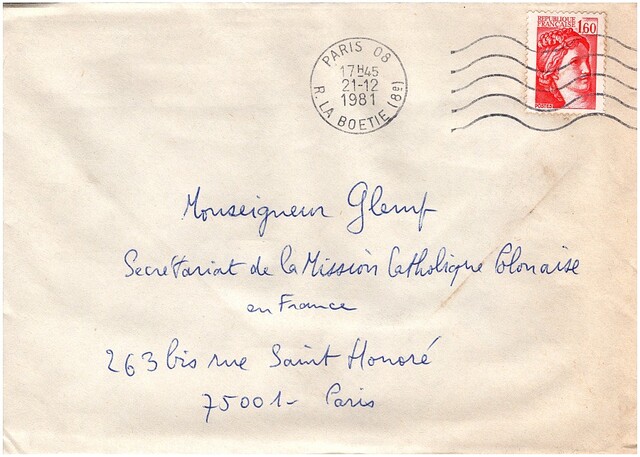 REPUBLIQUE
FRANÇAISE 1,60
POSTES
PARIS 08
17H45
21-12
1981
R. LA BOETIE (8e)
Monseigneur Glemp
Secrétariat de la Mission Catholique Polonaise
en France
263 bis rue Saint Honoré
75001- Paris